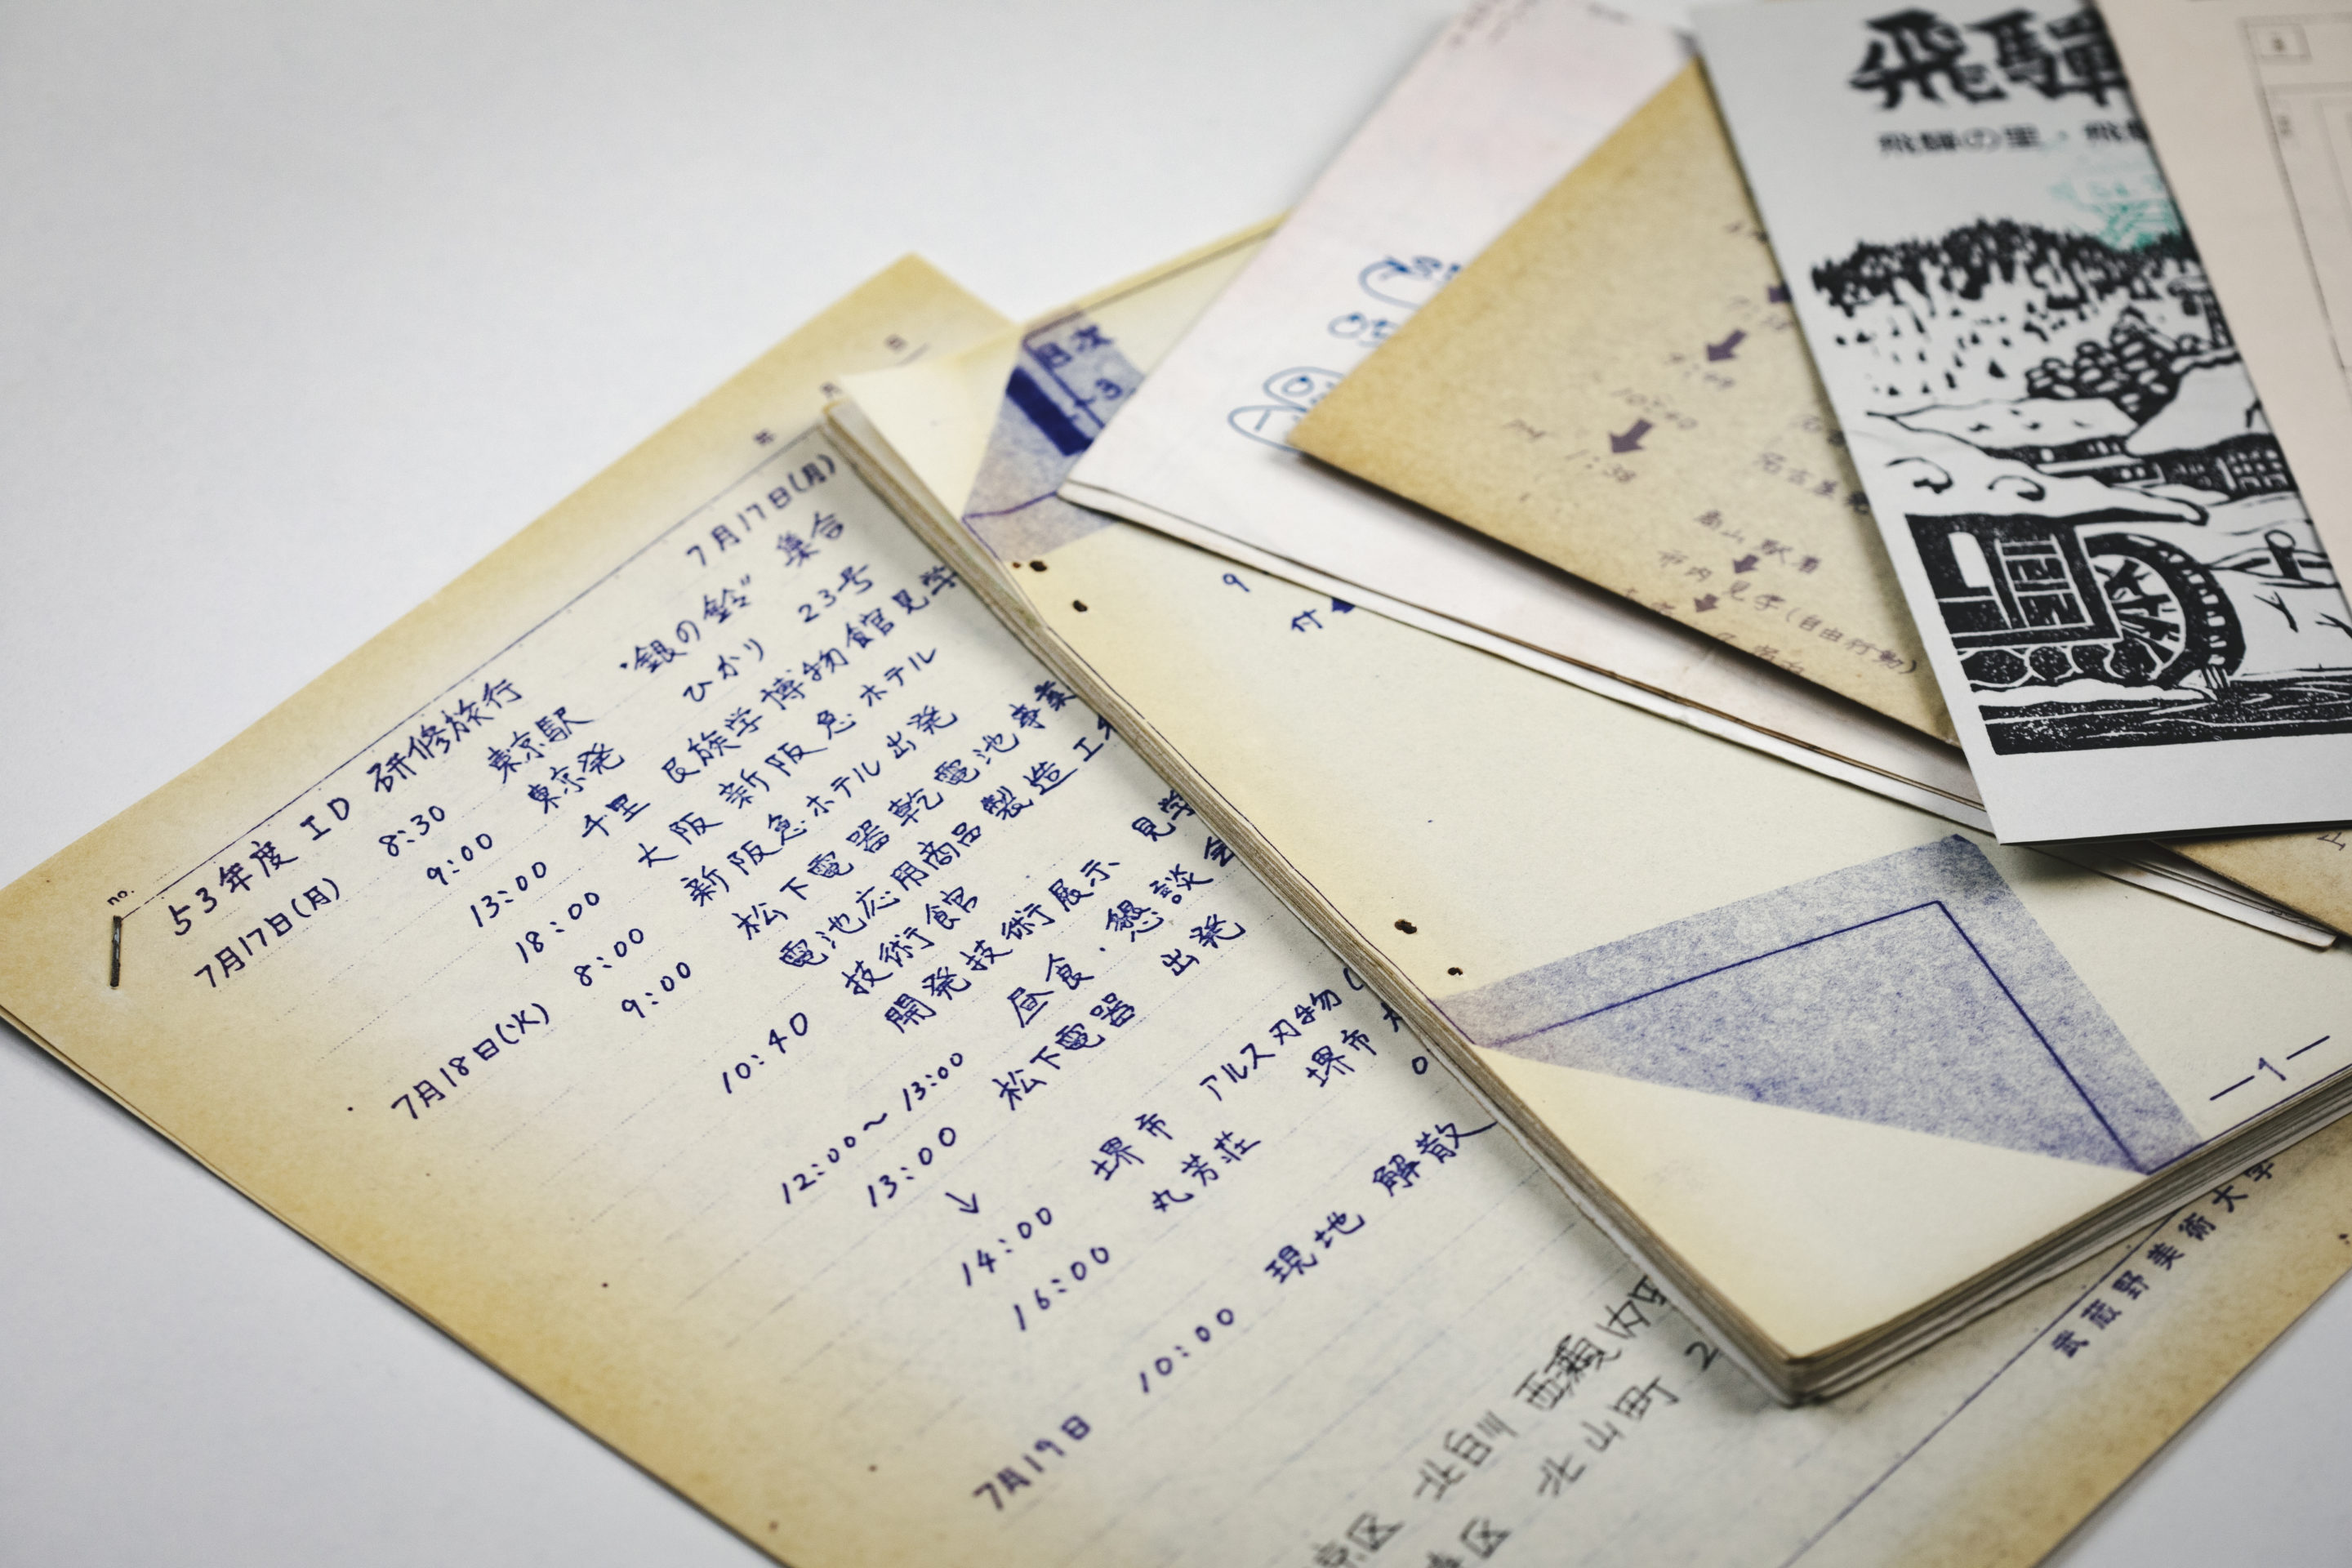 no.
7月17日(月)
53年度 ID 研修旅行
7月17日(月) 8:30 東京駅 "銀の鈴" 集合
9:00 東京発 ひかり 23号
13:00 千里 民族学博物館見学
18:00 大阪 新阪急ホテル
7月18日(火) 8:00 新阪急ホテル出発
9:00 松下電器乾電池事業
電池応用商品製造工
10:40 技術館
開発技術展示 見学
12:00〜13:00 昼食・懇談会
13:00 松下電器 出発
↓
14:00 堺市 アルス刃物(
16:00 丸芳荘 堺市
0
7月19日 10:00 現地 解散
区 北白川 西瀬
区 北山町 2
武蔵野美術大学
目次
1-3
9
付
—1—
10:40
1:38
高山駅着
市内見学(自由行動)
飛騨
飛騨の里・飛